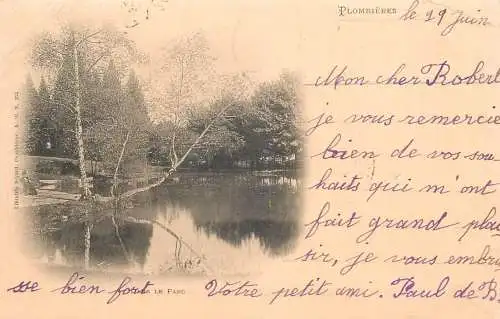 PLOMBIÈRES
le 19 Juin
Mon cher Robert
je vous remercie
bien de vos sou
haits qui m'ont
fait grand plai
sir, je vous embra
sse bien fort
LE PARC
Votre petit ami. Paul de B.